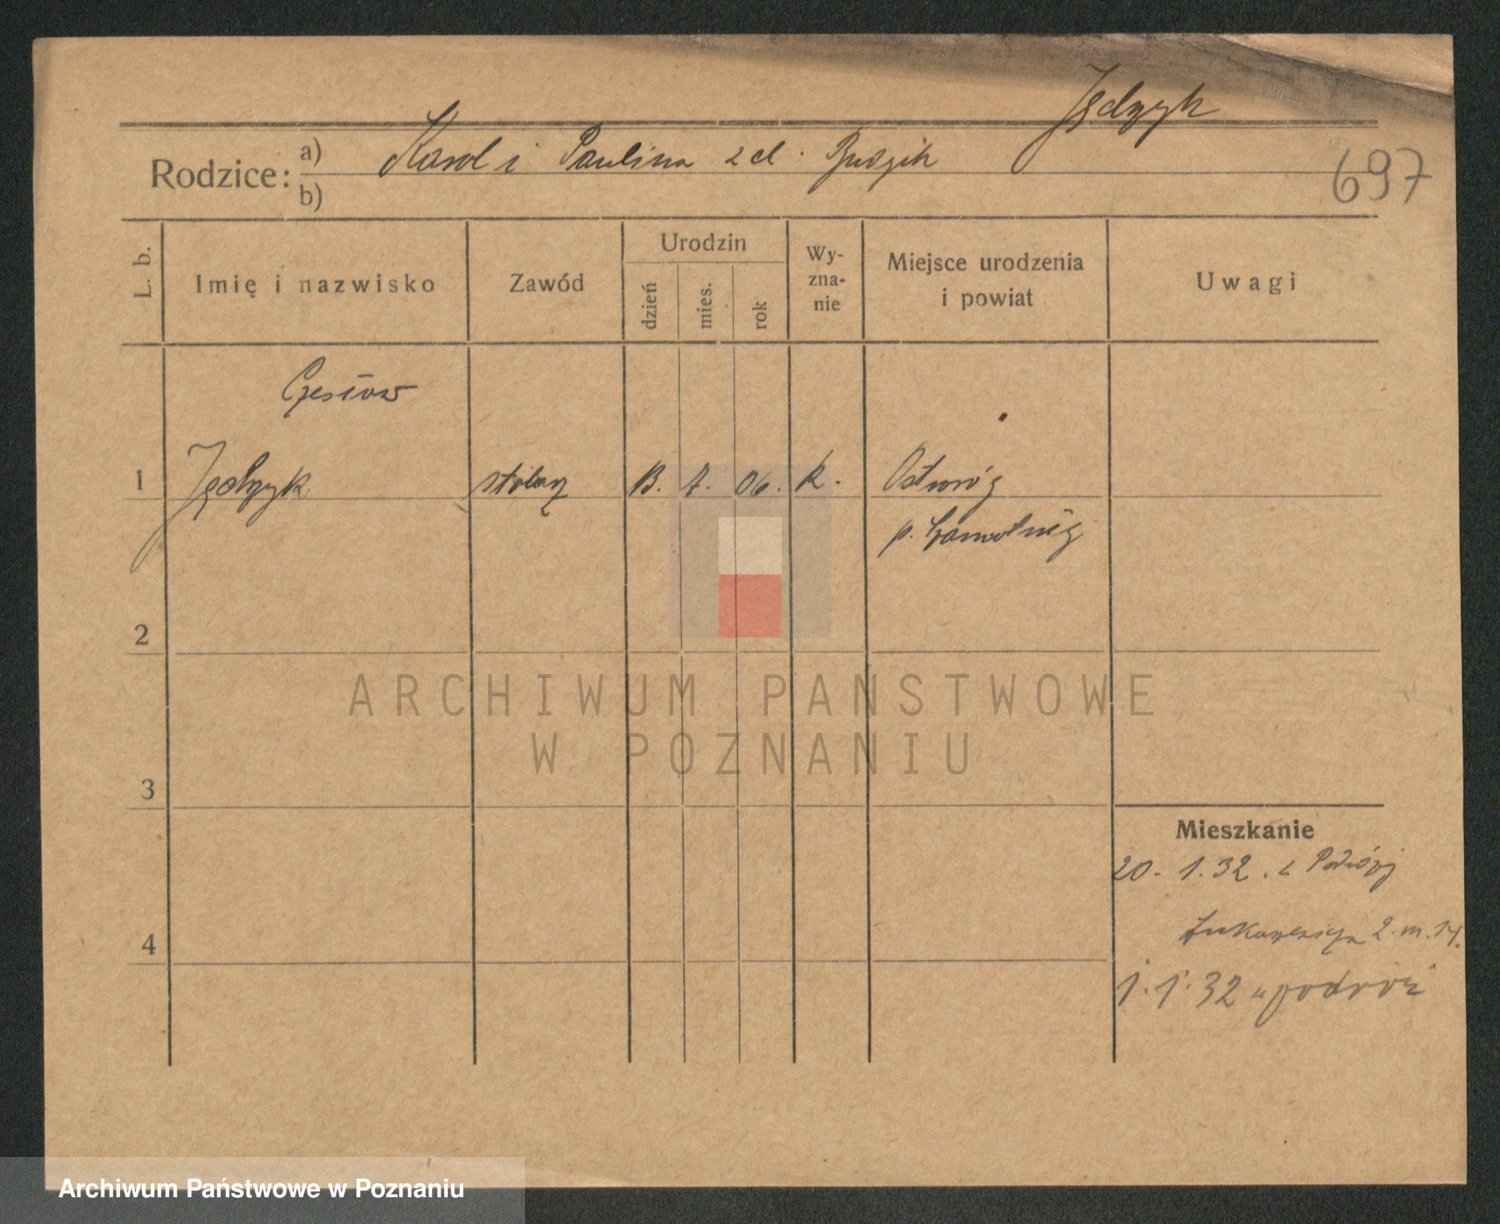 Jędzyk
Rodzice:
a) Karol i Paulina z d. Budzik
b)
697
L. b.
Imię i nazwisko
Zawód
Urodzin
dzień
mies.
rok
Wy-
zna-
nie
Miejsce urodzenia
i powiat
Uwagi
Czesław
1 Jędzyk stolarz 13. 7. 06. k. Ostroróg
p. Szamotuły
2
3
4
ARCHIWUM PAŃSTWOWE
W POZNANIU
Mieszkanie
20. 1. 32. z Podróży
Łukaszewicza 2. m. 14.
1. 1. 32 w podróż
Archiwum Państwowe w Poznaniu